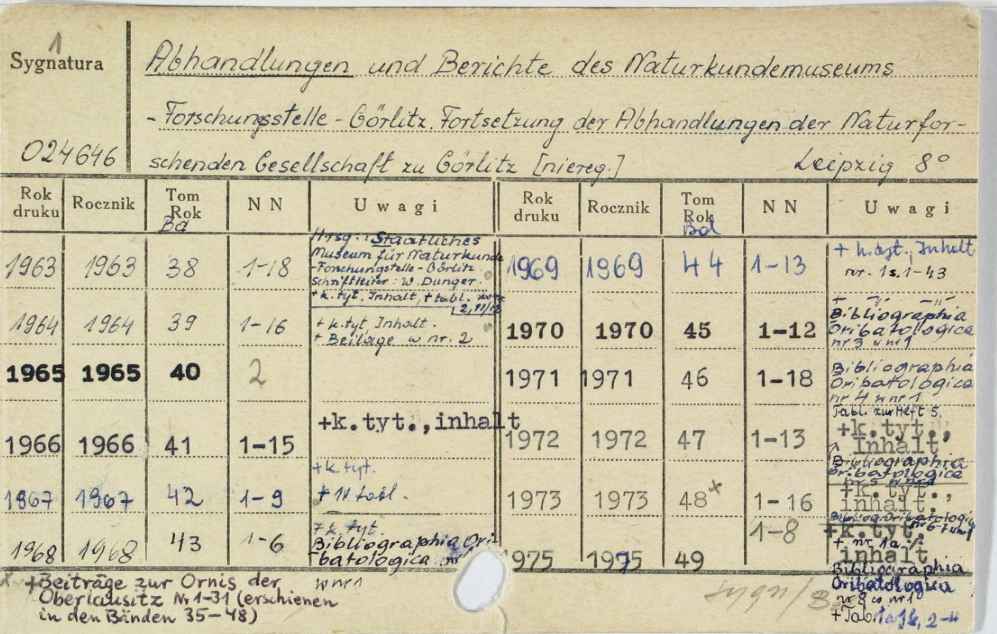 1
Sygnatura
Abhandlungen und Berichte des Naturkundemuseums
-Forschungsstelle-Görlitz. Fortsetzung der Abhandlungen der Naturfor-
024646
schenden Gesellschaft zu Görlitz [niereg.] Leipzig 8°
Rok druku Rocznik Tom Rok NN Uwagi
Bd
1963 1963 38 1-18
Hrsg.: Staatliches
Museum für Naturkunde
-Forschungstelle-Görlitz
Schriftleiter: W. Dunger.
+k.tyt, Inhalt, +tabl.
1964 1964 39 1-16
+k.tyt, Inhalt.
+ Beilage w nr. 2
1965 1965 40 2
1966 1966 41 1-15 +k.tyt., inhalt
1967 1967 42 1-9
+k.tyt.
+ 11 tabl.
1968 1968 43 1-6
+k.tyt.
Bibliographia Ori-
batologica
w nr 1
Rok druku Rocznik Tom Rok NN Uwagi
Bd
1969 1969 44 1-13
+ k.tyt., Inhalt
nr. 1 s. 1-43
1970 1970 45 1-12
+ -"- -"-
Bibliographia
Oribatologica
nr 3 w nr 1
1971 1971 46 1-18
Bibliographia
Oribatologica
nr 4 w nr 1
Tabl. zur Heft 5.
1972 1972 47 1-13
+k.tyt.,
inhalt
Bibliographia
Oribatologica
nr 5 w nr 1
1973 1973 48x 1-16
+k.tyt.,
inhalt.
Bibliogr. Oribatologica
nr 6 w nr 1
1975 1975 49 1-8
+k.tyt.
inhalt
Bibliographia
Oribatologica
nr 8 w nr 1
x +Beiträge zur Ornis der
Oberlausitz Nr 1-31 (erschienen
in den Bänden 35-48)